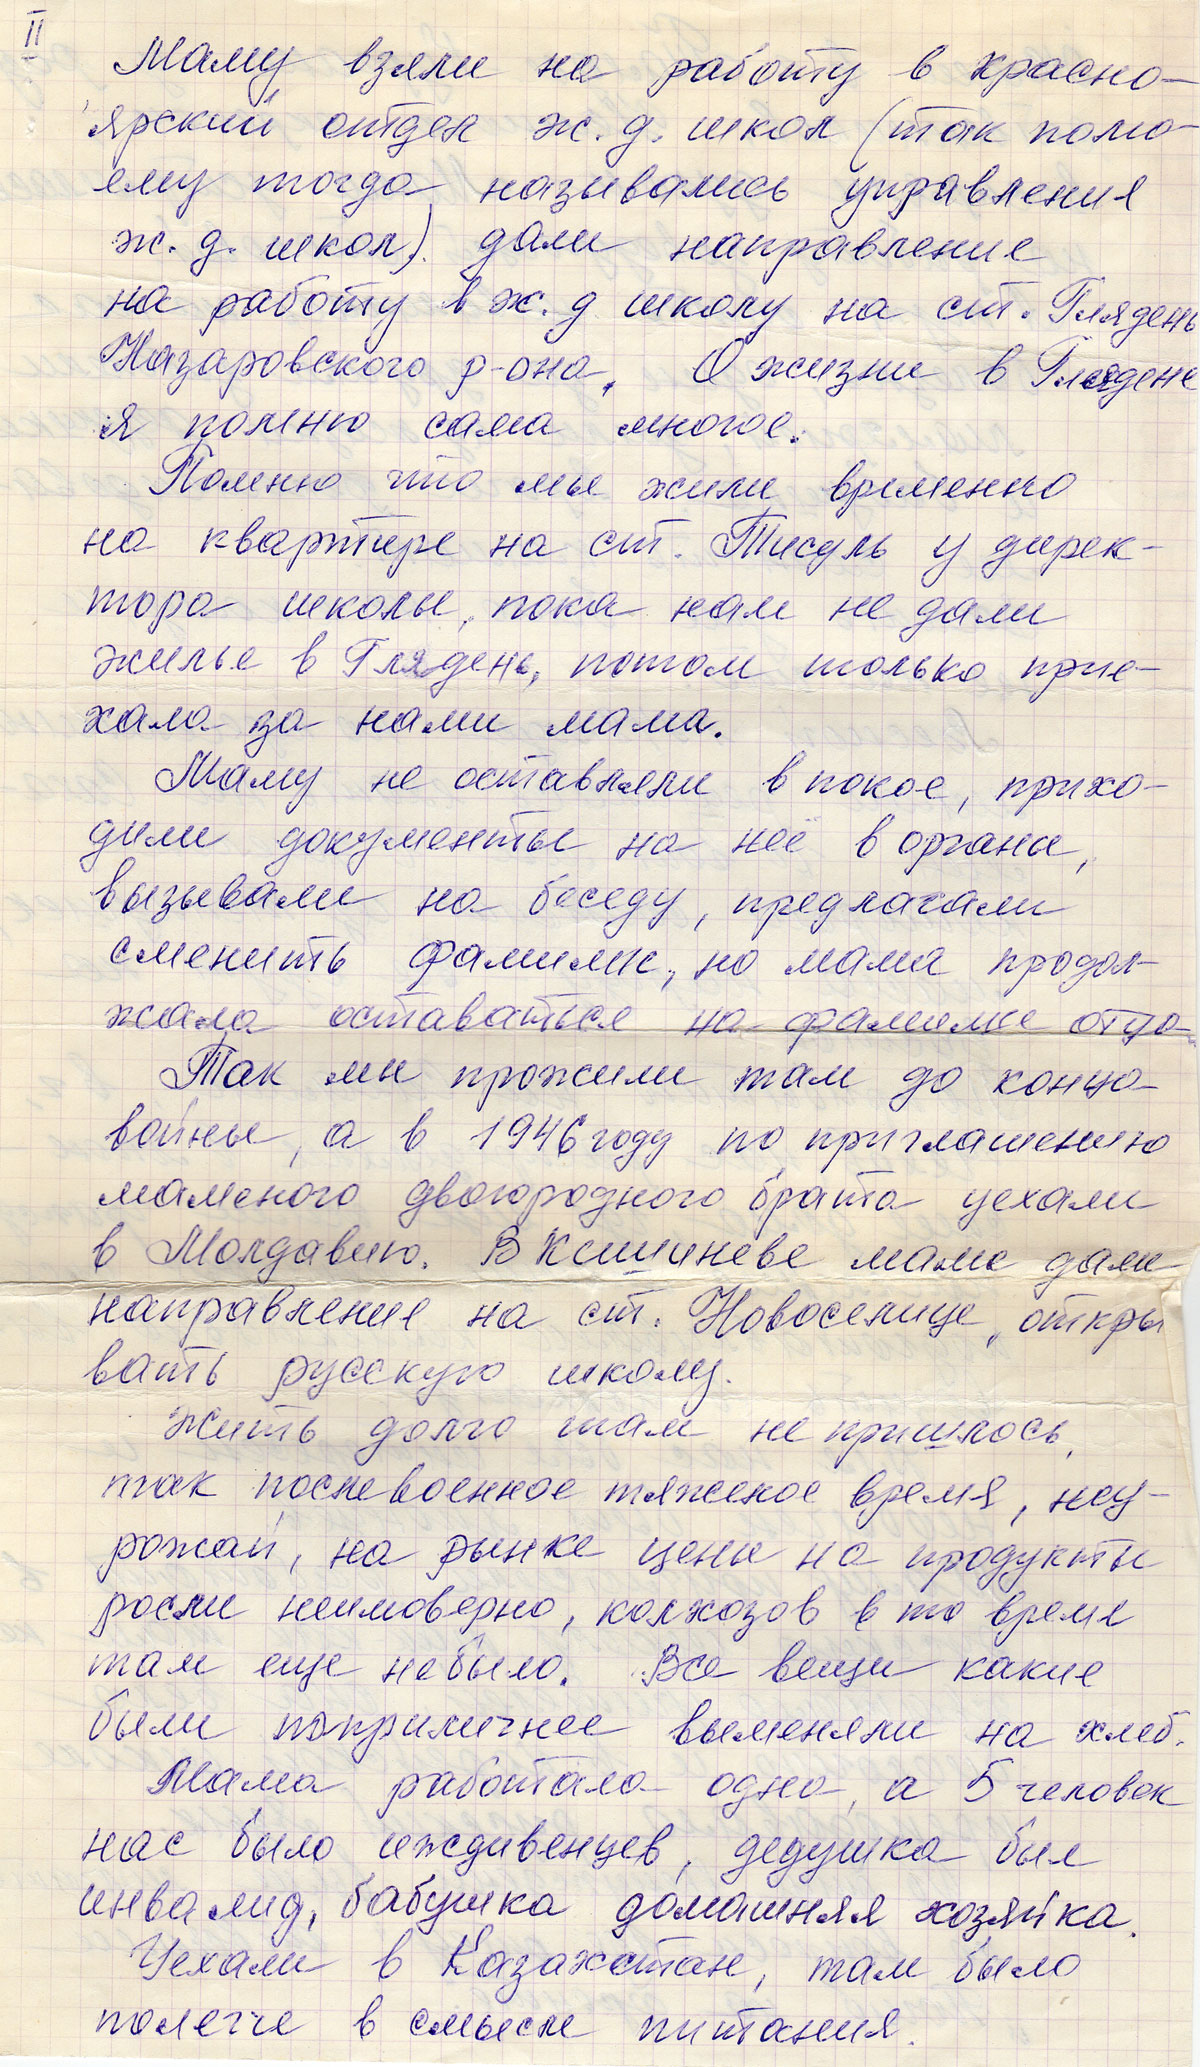 II
Маму взяли на работу в красно-
ярский отдел ж. д. школ (так помо-
ему тогда назывались управления
ж. д. школ). дали направление
на работу в ж. д школу на ст. Глядень
Назаровского р-она. О жизни в Глядене
я помню сама многое.
Помню что мы жили временно
на квартире на ст. Тисуль у дирек-
тора школы, пока нам не дали
жилье в Глядень, потом только прие-
хала за нами мама.
Маму не оставляли в покое, прихо-
дили документы на неё в органы,
вызывали на беседу, предлагали
сменить фамилию, но мама продол-
жала оставаться на фамилие отца.
Так мы прожили там до конца
войны, а в 1946 году по приглашению
маменого двоюродного брата уехали
в Молдавию. В Кишиневе маме дали
направление на ст. Новоселице, откры
вать русскую школу.
Жить долго там не пришлось,
так послевоенное тяжелое время, неу-
рожай, на рынке цены на продукты
росли неимоверно, колхозов в то время
там еще небыло. Все вещи какие
были поприличнее выменяли на хлеб.
Мама работала одна, а 5 человек
нас было иждивенцев, дедушка был
инвалид, бабушка домашняя хозяйка.
Уехали в Казахстан, там было
полегче в смысле питания.